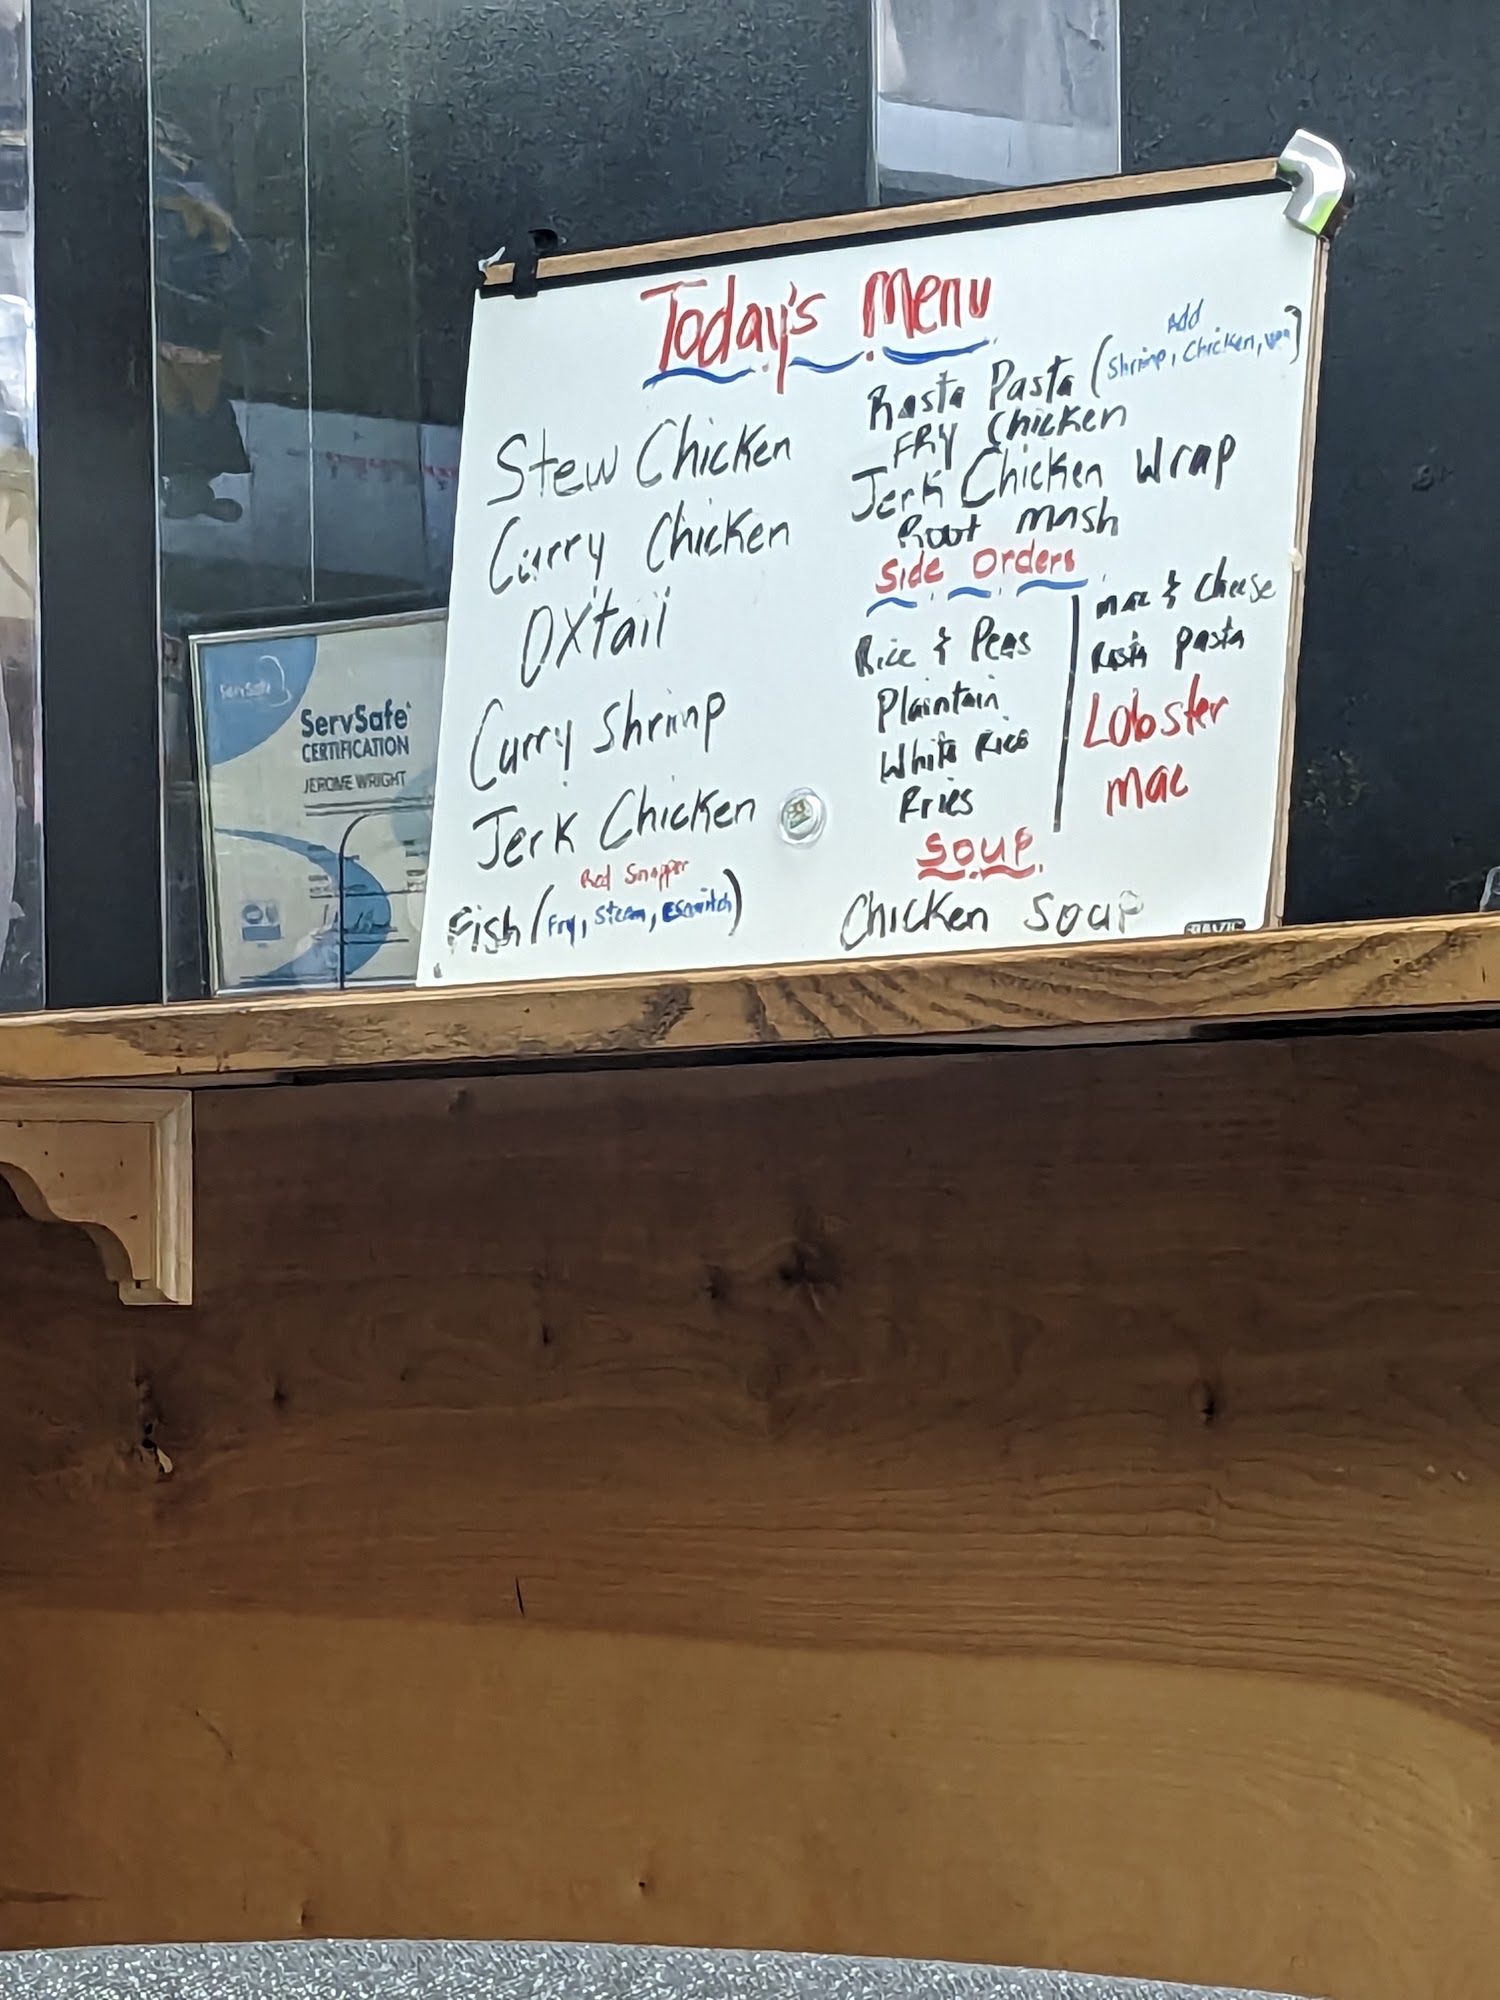 Today's Menu
Stew Chicken
Curry Chicken
Oxtail
Curry Shrimp
Jerk Chicken
Red Snapper
Fish (Fry, Steam, Escovitch)
Add
Rasta Pasta (Shrimp, Chicken,
FRY Chicken
Jerk Chicken Wrap
Root mash
Side Orders
Rice & Peas
Plaintain
White Rice
Fries
Mac & Cheese
Rasta Pasta
Lobster
Mac
Soup
Chicken Soup
ServSafe
ServSafe®
CERTIFICATION
JEROME WRIGHT